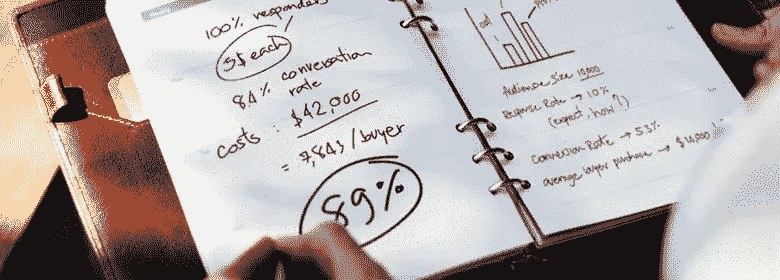 100% responders
3$ each
84% conversation
rate
costs: $42,000
= 7,843 / buyer
89%
Audience Size 10,000
Response Rate → 10%
(expect. how?)
Conversion Rate → 53%
average buyer purchase → $10,000